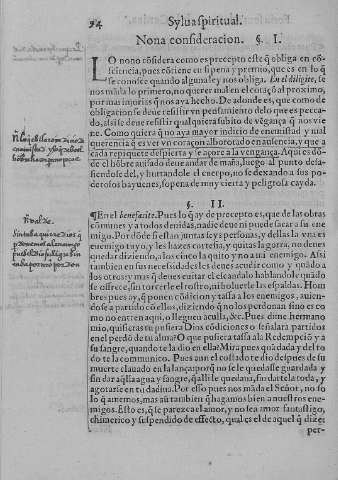 94 Sylua spiritual.
Nona consideracion. §. I.
LO nono cōsidera como es precepto este q̄ obliga en cō-
sciencia, pues cōtiene su pena y premio, que es en lo q̄
se conoce quando alguna ley nos obliga. En el diligite, se
nos māda lo primero, no querer mal en el coraçō al proximo,
por mas injurias q̄ nos aya hecho. De adonde es, que como de
obligacion se deue resistir vn pensamiento delo que es pecca-
do, assi se deue resistir qualquiera subito de vēgança q̄ nos vie
ne. Como quiera q̄ no aya mayor indicio de enemistad y mal
querencia q̄ es ver vn coraçon alborotado en ausencia, y que a
cada repiquete despierta y se açore a la vengança. Aqui es dō-
de el hōbre auisado deue andar de maña, luego al punto desa-
siendose del, y hurtandole el cuerpo, no se dexando a sus po-
derosos bayuenes, so pena de muy cierta y peligrosa cayda.
§. II.
¶ En el benefacite. Pues lo q̄ ay de precepto es, que de las obras
comunes y a todos deuidas, nadie deue ni puede sacar a su ene
migo. Por dōde si estan juntas seys personas, y dellas la vna es
enemigo tuyo, y les hazes cortesia, y quitas la gorra, no deues
quedar diziendo, a los cinco la quito y no a mi enemigo. Assi
tambien en sus necessidades les deues acudir como y quādo a
los otros: y assi q̄ deues euitar el escandalo hablandole quādo
se offrece, sin torcerle el rostro, ni boluerle las espaldas. Hom
bres pues ay, q̄ ponen cōdicion y tassa a los enemigos, auien-
dose a partido cō ellos, diziendo q̄ no los perdonan sino es co
mo no entren aqui, o lleguen aculla, &c. Pues dime hermano
mio, quisieras tu pusiera Dios cōdiciones o señalara partidos
en el perdō de tu alma? O que pusiera tassa ala Redempciō y a
su sangre, quando te la dio en ella? Mira pues quā dada y del to
do te la communico. Pues aun el costado te dio despues de su
muerte clauado en la lança, porq̄ no se le quedasse guardada y
sin dar aq̄lla agua y sangre, q̄ alli le quedaua, sin dartela toda, y
agotarse en tu daduia. Por esso pues nos māda el Señor, no so
lo q̄ amemos, mas aū tambien q̄ hagamos bien a nuestros ene-
migos. Esto es, q̄ se parezca el amor, y no sea amor fantastigo,
chimerico y suspendido de effecto, qual es el de aquel q̄ dize:
per-